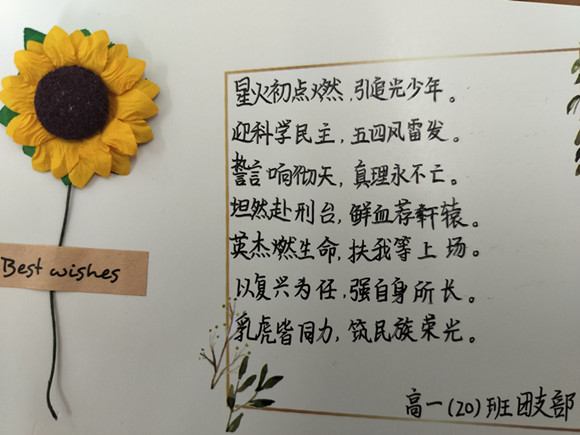 星火初点燃,引追光少年。
迎科学民主,五四风雷发。
誓言响彻天,真理永不亡。
坦然赴刑台,鲜血荐轩辕。
英杰燃生命,扶我等上场。
以复兴为任,强自身所长。
乳虎皆同力,筑民族荣光。
高一(20)班团支部
Best wishes